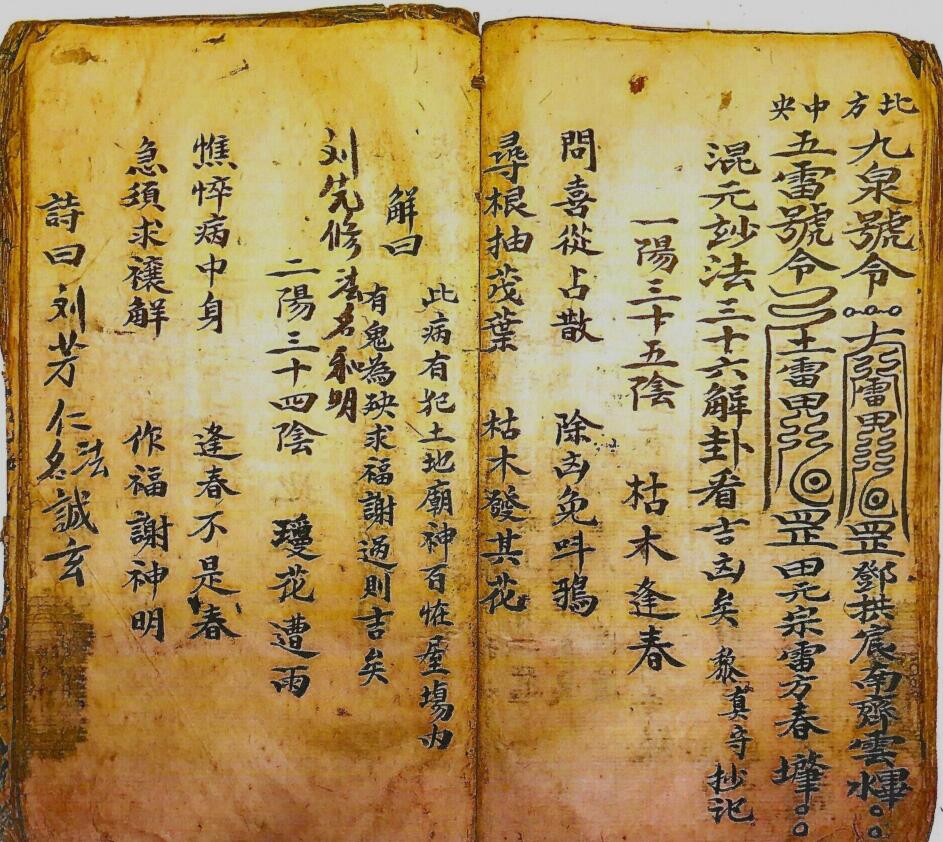 北方
九泉號令
鄧拱宸南齊雲
中央
五雷號令
土雷
罡田元宗雷方春
混元玅法三十六解卦看吉凶矣
真守抄記
一陽三十五陰 枯木逢春
問喜從占散 除凶免呌鴉
尋根抽茂葉 枯木發其花
解曰
此病有犯土地廟神百恠屋場内
有鬼為殃求福謝過則吉矣
刘先修法名和明
二陽三十四陰 瓊花遭雨
憔悴病中身 逢春不是春
急須求禳解 作福謝神明
詩曰
刘芳仁法名誠玄